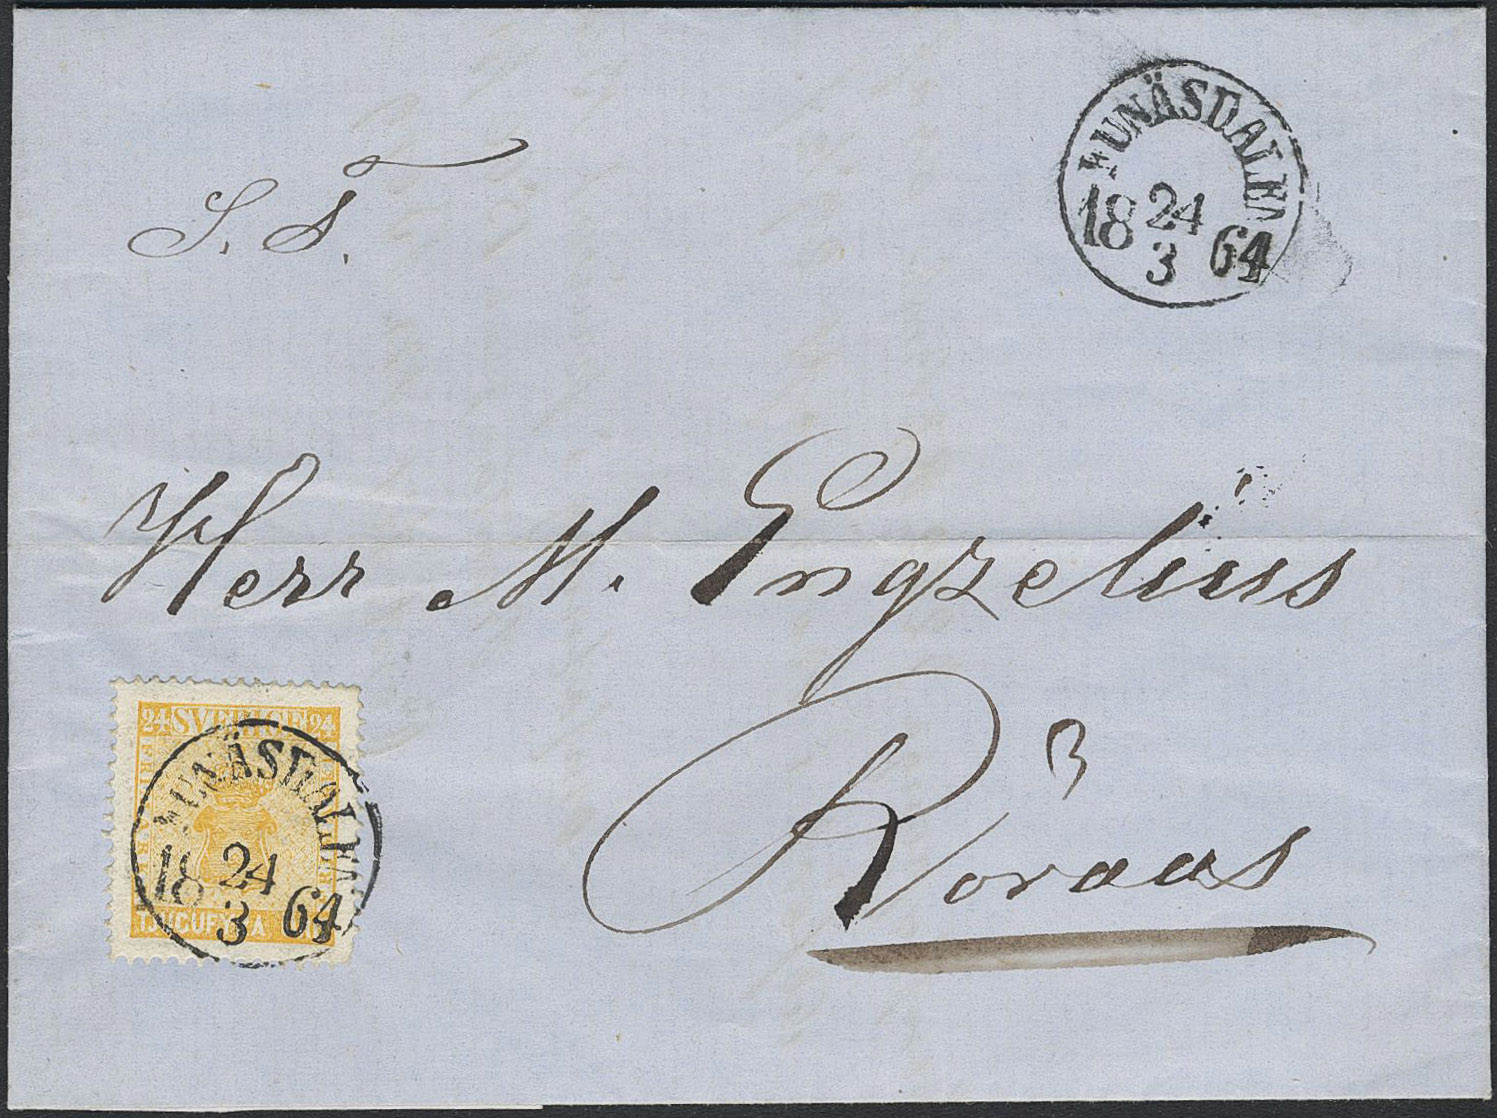 FUNÄSDALEN
18 24 64
3
S. T.
Herr M. Engzelius
Röraas
24 SVERIGE 24
FRIMÄRKE
TJUGUFYRA ÖRE
FUNÄSDALEN
18 24 64
3